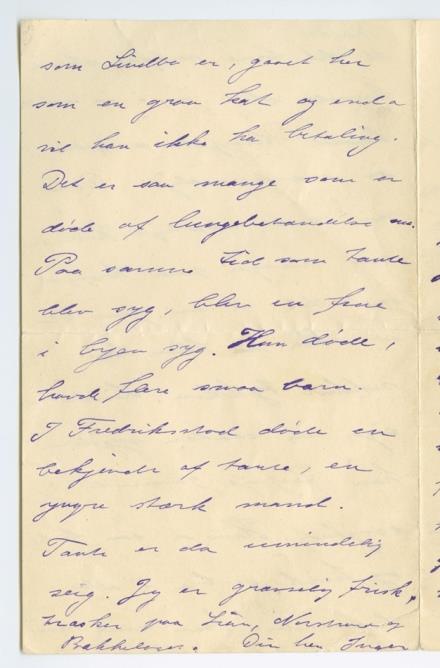 som Lindbo er, gaaet her
som en graa kat og enda
vil han ikke ha betaling.
Det er saa mange som er
døde af lungebetændelse nu.
Paa samme tid som tante
blev syg, blev en frue
i byen syg. Hun døde,
havde flere smaa barn.
I Fredriksstad døde en
bekjendt af tante, en
yngre stærk mand.
Tante er da umindelig
seig. Jeg er græsselig frisk,
trasker paa Lian, Nordstrand og
Bækkelaget. Din hen. Inger